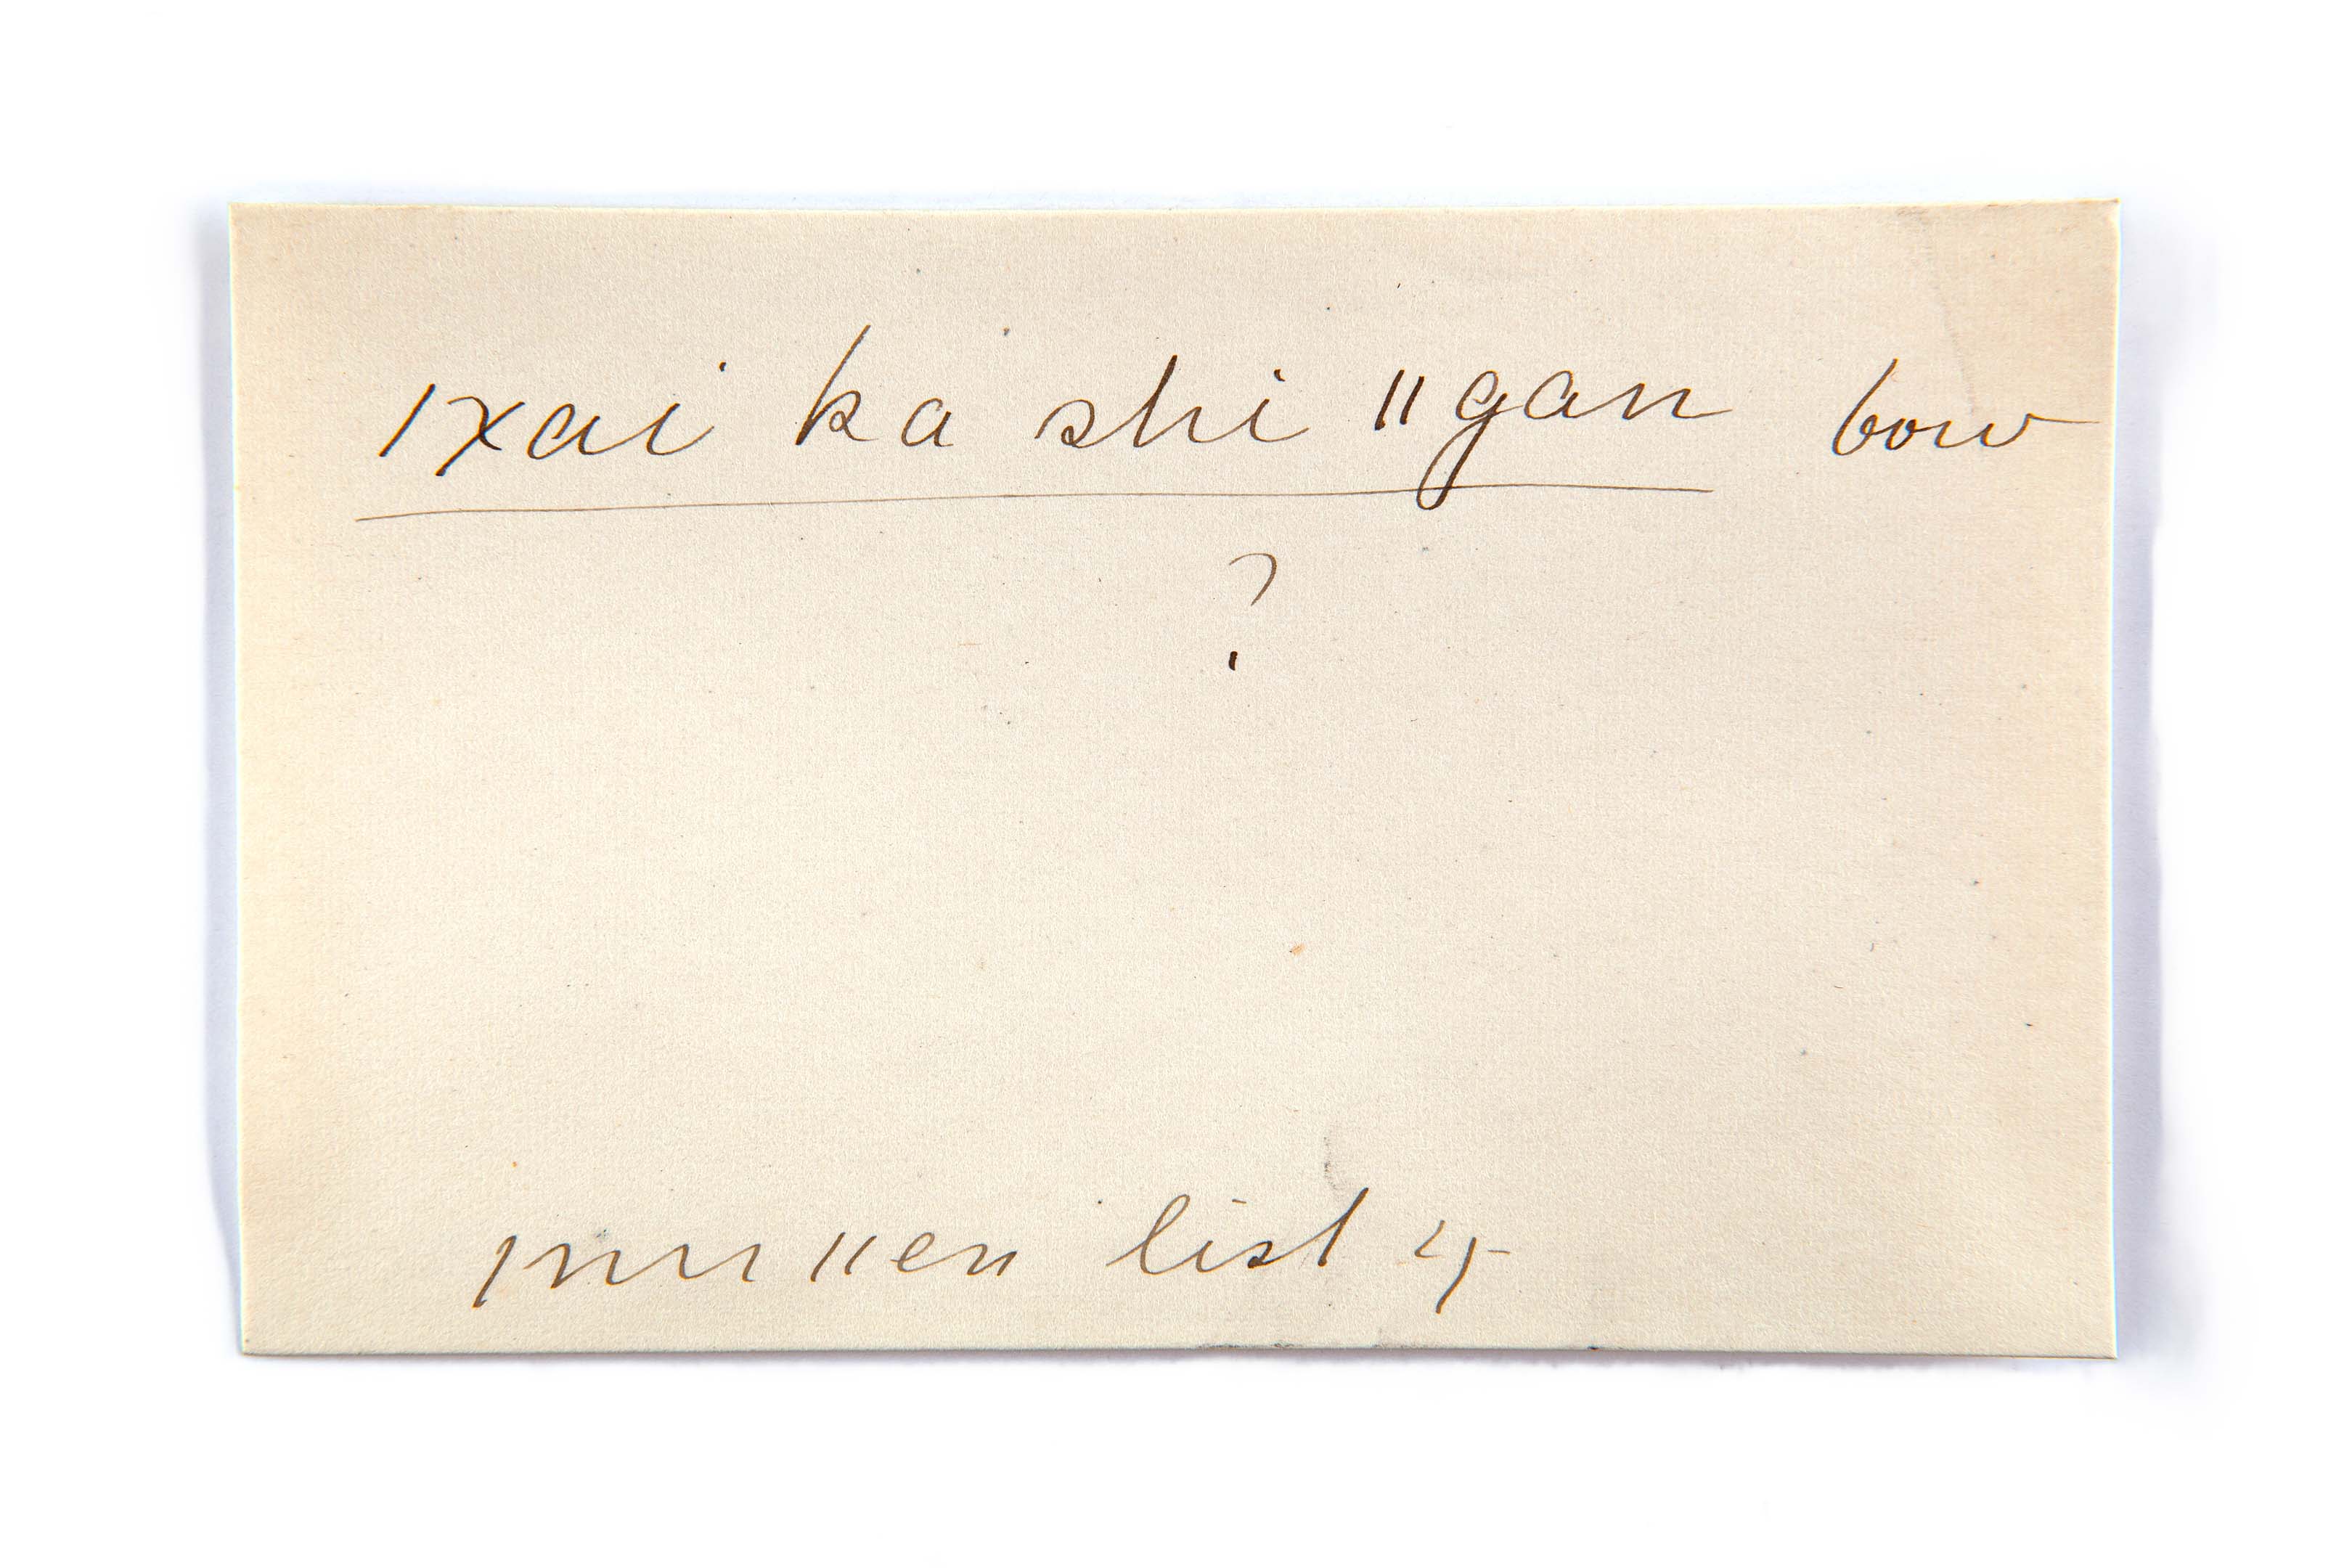 ǀxai ka shi ǁgan bow
?
ǀnu ǁen list 4